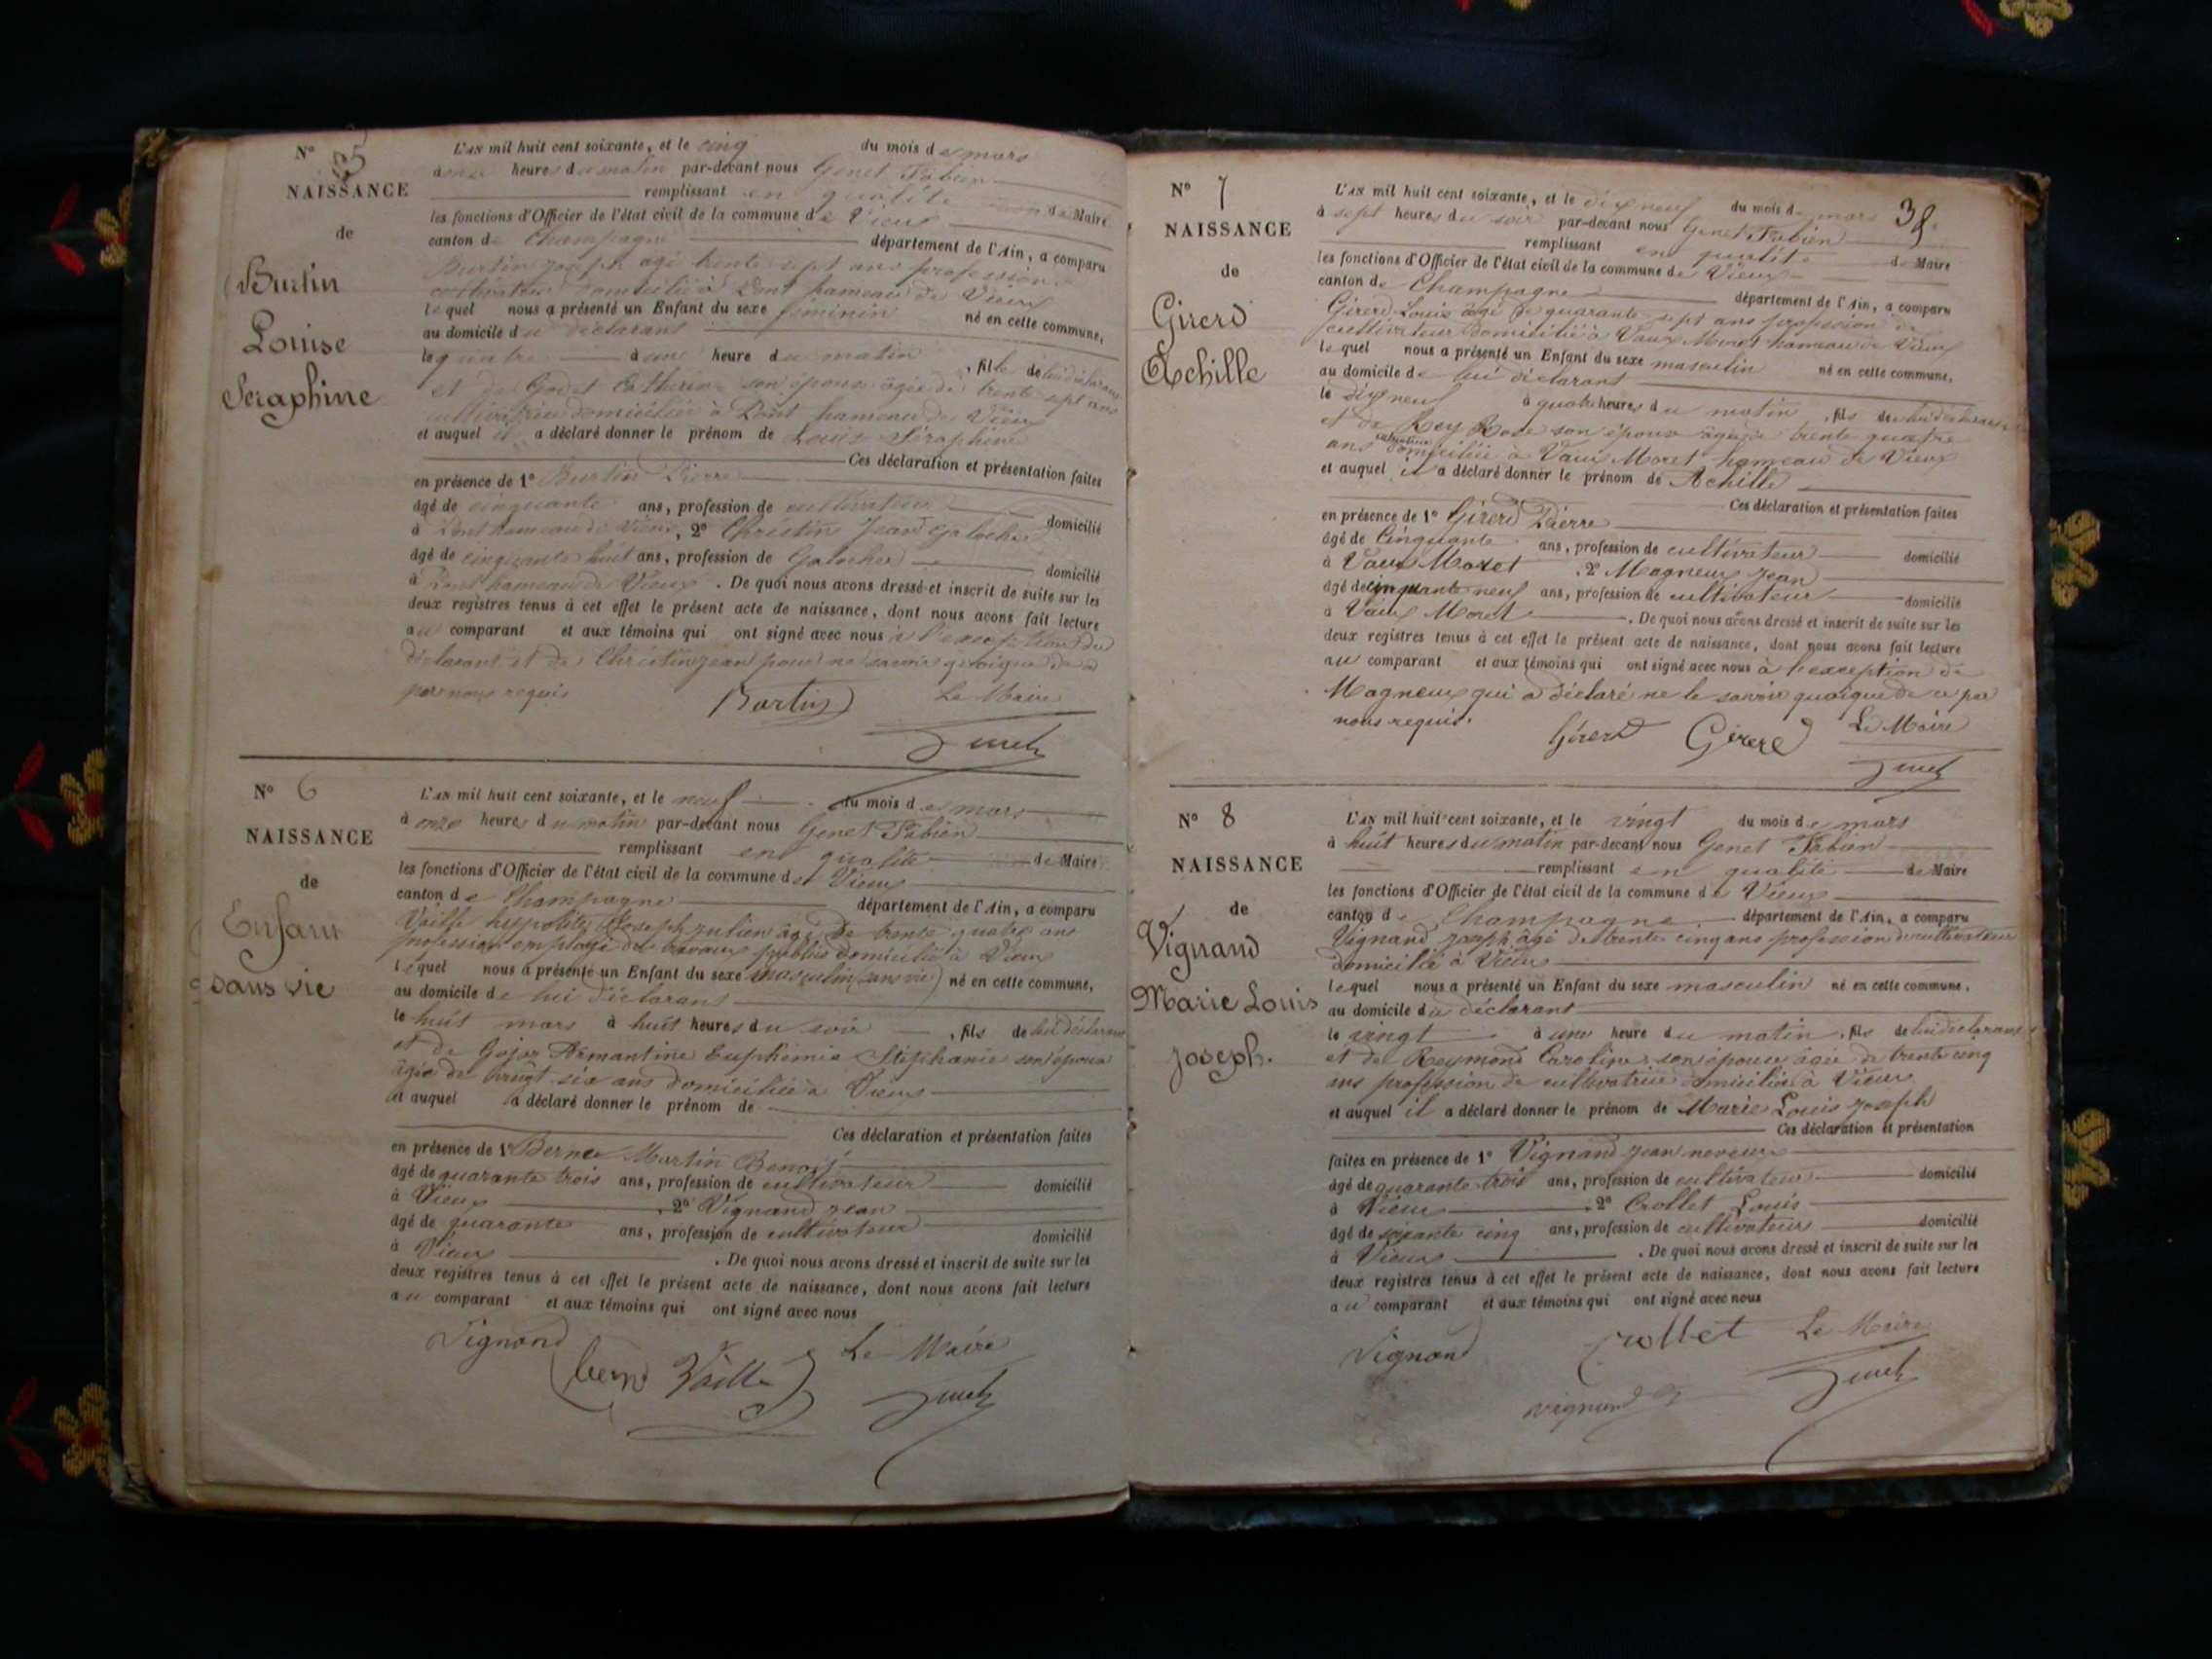 N° 5
NAISSANCE
de
Burtin
Louise
Seraphine
L'AN mil huit cent soixante, et le cinq du mois de mars
à onze heures du matin par-devant nous Genet Fabien
remplissant en qualité de Maire
les fonctions d'Officier de l'état civil de la commune de Vieux
canton de Champagne département de l'Ain, a comparu
Burtin Joseph agé trente sept ans profession
cultivateur domicilié à hameau de Vieux
lequel nous a présenté un Enfant du sexe féminin né en cette commune,
au domicile du déclarant
le quatre à une heure du matin, fille de lui déclarant
et de Catherine son épouse âgée de trente sept ans
cultivatrice domiciliée à hameau de Vieux
et auquel il a déclaré donner le prénom de Louise Séraphine
Ces déclaration et présentation faites
en présence de 1° Burtin Pierre
âgé de cinquante ans, profession de cultivateur domicilié
à hameau de Vieux, 2° Christin Jean
âgé de cinquante huit ans, profession de Galocher domicilié
à hameau de Vieux. De quoi nous avons dressé et inscrit de suite sur les
deux registres tenus à cet effet le présent acte de naissance, dont nous avons fait lecture
au comparant et aux témoins qui ont signé avec nous à l'exception du
déclarant et de Christin Jean pour ne savoir quoique de ce
par nous requis Le Maire
N° 6
NAISSANCE
de
Enfant
sans vie
L'AN mil huit cent soixante, et le neuf du mois de mars
à onze heures du matin par-devant nous Genet Fabien
remplissant en qualité de Maire
les fonctions d'Officier de l'état civil de la commune de Vieux
canton de Champagne département de l'Ain, a comparu
Joseph Julien âgé de trente quatre ans
profession employé des travaux publics domicilié à Vieux
lequel nous a présenté un Enfant du sexe masculin (sans vie) né en cette commune,
au domicile de lui déclarant
le huit mars à huit heures du soir, fils de lui déclarant
et de Armantine Euphémie Stéphanie son épouse
âgée de vingt six ans domiciliée à Vieux
et auquel a déclaré donner le prénom de
Ces déclaration et présentation faites
en présence de 1° Martin Benoit
âgé de quarante trois ans, profession de cultivateur domicilié
à Vieux, 2° Vignand Jean
âgé de quarante ans, profession de cultivateur domicilié
à Vieux. De quoi nous avons dressé et inscrit de suite sur les
deux registres tenus à cet effet le présent acte de naissance, dont nous avons fait lecture
au comparant et aux témoins qui ont signé avec nous
Vignand Le Maire
38
N° 7
NAISSANCE
de
Girerd
Achille
L'AN mil huit cent soixante, et le dix neuf du mois de mars
à sept heures du soir par-devant nous Genet Fabien
remplissant en qualité de Maire
les fonctions d'Officier de l'état civil de la commune de Vieux
canton de Champagne département de l'Ain, a comparu
Girerd Louis âgé de quarante sept ans profession de
cultivateur domicilié à Vaux Moret hameau de Vieux
lequel nous a présenté un Enfant du sexe masculin né en cette commune,
au domicile de lui déclarant
le dix neuf à quatre heures du matin, fils de lui déclarant
et de Rey Rose son épouse âgée de trente quatre
ans cultivatrice domiciliée à Vaux Moret hameau de Vieux
et auquel il a déclaré donner le prénom de Achille
Ces déclaration et présentation faites
en présence de 1° Girerd Pierre
âgé de Cinquante ans, profession de cultivateur domicilié
à Vaux Moret, 2° Magneux Jean
âgé de cinquante neuf ans, profession de cultivateur domicilié
à Vaux Moret. De quoi nous avons dressé et inscrit de suite sur les
deux registres tenus à cet effet le présent acte de naissance, dont nous avons fait lecture
au comparant et aux témoins qui ont signé avec nous à l'exception de
Magneux qui a déclaré ne le savoir quoique de ce par
nous requis. Girerd Girerd Le Maire
N° 8
NAISSANCE
de
Vignand
Marie Louis
Joseph.
L'AN mil huit cent soixante, et le vingt du mois de mars
à huit heures du matin par-devant nous Genet Fabien
remplissant en qualité de Maire
les fonctions d'Officier de l'état civil de la commune de Vieux
canton de Champagne département de l'Ain, a comparu
Vignand Joseph âgé de trente cinq ans profession de cultivateur
domicilié à Vieux
lequel nous a présenté un Enfant du sexe masculin né en cette commune,
au domicile du déclarant
le vingt à une heure du matin, fils de lui déclarant
et de Reymond Caroline son épouse âgée de trente cinq
ans profession de cultivatrice domiciliée à Vieux
et auquel il a déclaré donner le prénom de Marie Louis Joseph
Ces déclaration et présentation
faites en présence de 1° Vignand Jean
âgé de quarante trois ans, profession de cultivateur domicilié
à Vieux, 2° Crollet Louis
âgé de soixante cinq ans, profession de cultivateur domicilié
à Vieux. De quoi nous avons dressé et inscrit de suite sur les
deux registres tenus à cet effet le présent acte de naissance, dont nous avons fait lecture
au comparant et aux témoins qui ont signé avec nous
Vignand Crollet Le Maire
vignand